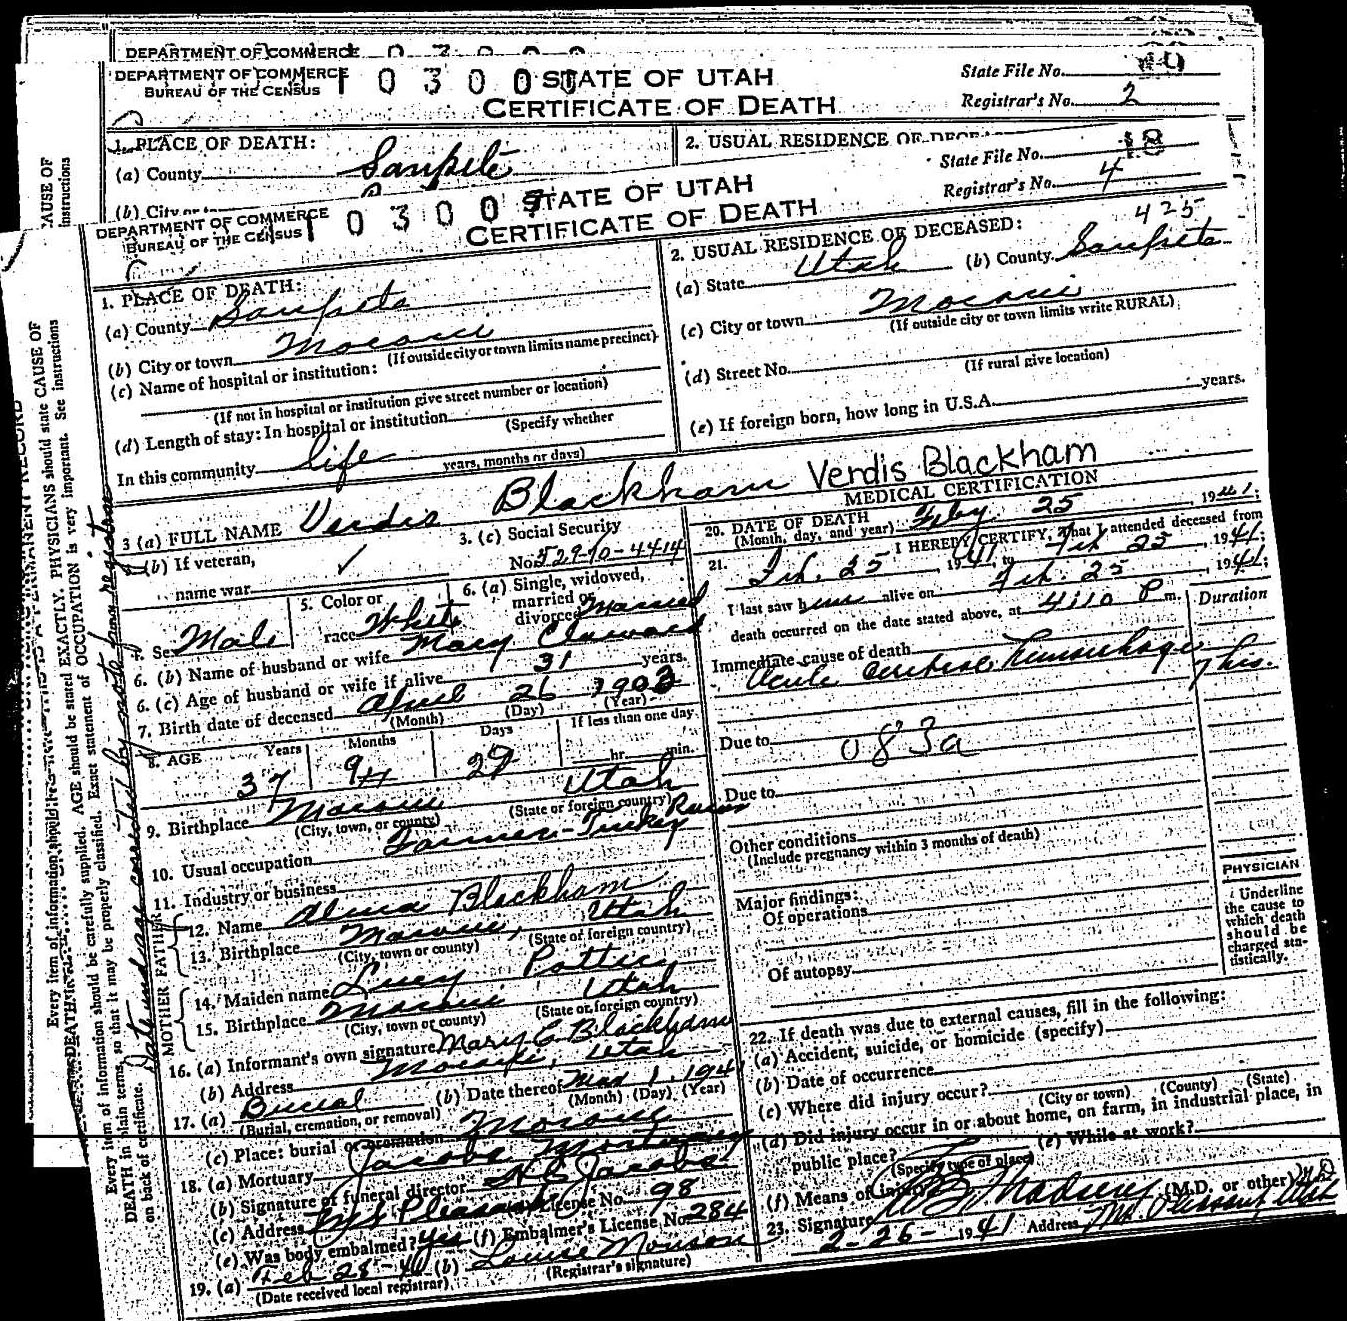 DEPARTMENT OF COMMERCE
DEPARTMENT OF COMMERCE
BUREAU OF THE CENSUS
1 0 3 0 0
STATE OF UTAH
CERTIFICATE OF DEATH
State File No.
Registrar's No. 2
1. PLACE OF DEATH:
(a) County Sanpete
2. USUAL RESIDENCE OF
CAUSE OF
instructions
DEPARTMENT OF COMMERCE
BUREAU OF THE CENSUS
1 0 3 0 0
STATE OF UTAH
CERTIFICATE OF DEATH
State File No. 18
Registrar's No. 4
425
1. PLACE OF DEATH:
(a) County Sanpete
(b) City or town Moroni
(If outside city or town limits name precinct)
(c) Name of hospital or institution:
(If not in hospital or institution give street number or location)
(d) Length of stay: In hospital or institution
(Specify whether
In this community life
years, months or days)
2. USUAL RESIDENCE OF DECEASED:
(a) State Utah (b) County Sanpete
(c) City or town Moroni
(If outside city or town limits write RURAL)
(d) Street No.
(If rural give location)
(e) If foreign born, how long in U.S.A. years.
3 (a) FULL NAME Verdis Blackham Verdis Blackham
(b) If veteran,
name war
3. (c) Social Security
No. 529-10-4414
4. Sex Male
5. Color or
race White
6. (a) Single, widowed,
married or
divorced Married
6. (b) Name of husband or wife Mary
6. (c) Age of husband or wife if alive 31 years.
7. Birth date of deceased April 26 1903
(Month) (Day) (Year)
8. AGE Years Months Days If less than one day
37 hr. min.
9. Birthplace Moroni Utah
(City, town, or county) (State or foreign country)
10. Usual occupation Farmer - Turkey
11. Industry or business
FATHER
12. Name Alma Blackham
13. Birthplace Moroni, Utah
(City, town or county) (State or foreign country)
MOTHER
14. Maiden name Lucy
15. Birthplace Moroni Utah
(City, town or county) (State or foreign country)
16. (a) Informant's own signature Mary E Blackham
(b) Address Moroni, Utah
17. (a) Burial (b) Date thereof Mar 1, 1941
(Burial, cremation, or removal) (Month) (Day) (Year)
(c) Place: burial or cremation Moroni
18. (a) Mortuary Jacobs Mortuary
(b) Signature of funeral director Jacobs
(c) Address Mt Pleasant License No. 98
(e) Was body embalmed? yes (f) Embalmer's License No. 284
19. (a) Feb 28 - (b) Louise Monson
(Date received local registrar) (Registrar's signature)
MEDICAL CERTIFICATION
20. DATE OF DEATH
(Month, day, and year) Feby. 25, 1941;
21. I HEREBY CERTIFY, That I attended deceased from
Feb. 25, 1941, to Feb 25, 1941;
I last saw him alive on Feb. 25, 1941;
death occurred on the date stated above, at 4:10 P m.
Duration
Immediate cause of death
Acute cerebral hemorrhage 7 hrs.
Due to 083a
Due to
Other conditions
(Include pregnancy within 3 months of death)
Major findings:
Of operations
Of autopsy
PHYSICIAN
Underline
the cause to
which death
should be
charged sta-
tistically.
22. If death was due to external causes, fill in the following:
(a) Accident, suicide, or homicide (specify)
(b) Date of occurrence
(c) Where did injury occur?
(City or town) (County) (State)
(d) Did injury occur in or about home, on farm, in industrial place, in
public place? (e) While at work?
(Specify type of place)
(f) Means of injury
23. Signature Madsen (M.D. or other) M.D.
2-26-1941 Address Mt. Pleasant Utah
Every item of information should be carefully supplied. AGE should be stated EXACTLY. PHYSICIANS should state CAUSE OF
DEATH in plain terms, so that it may be properly classified. Exact statement of OCCUPATION is very important. See instructions
on back of certificate.
Date and age corrected by note from registrar